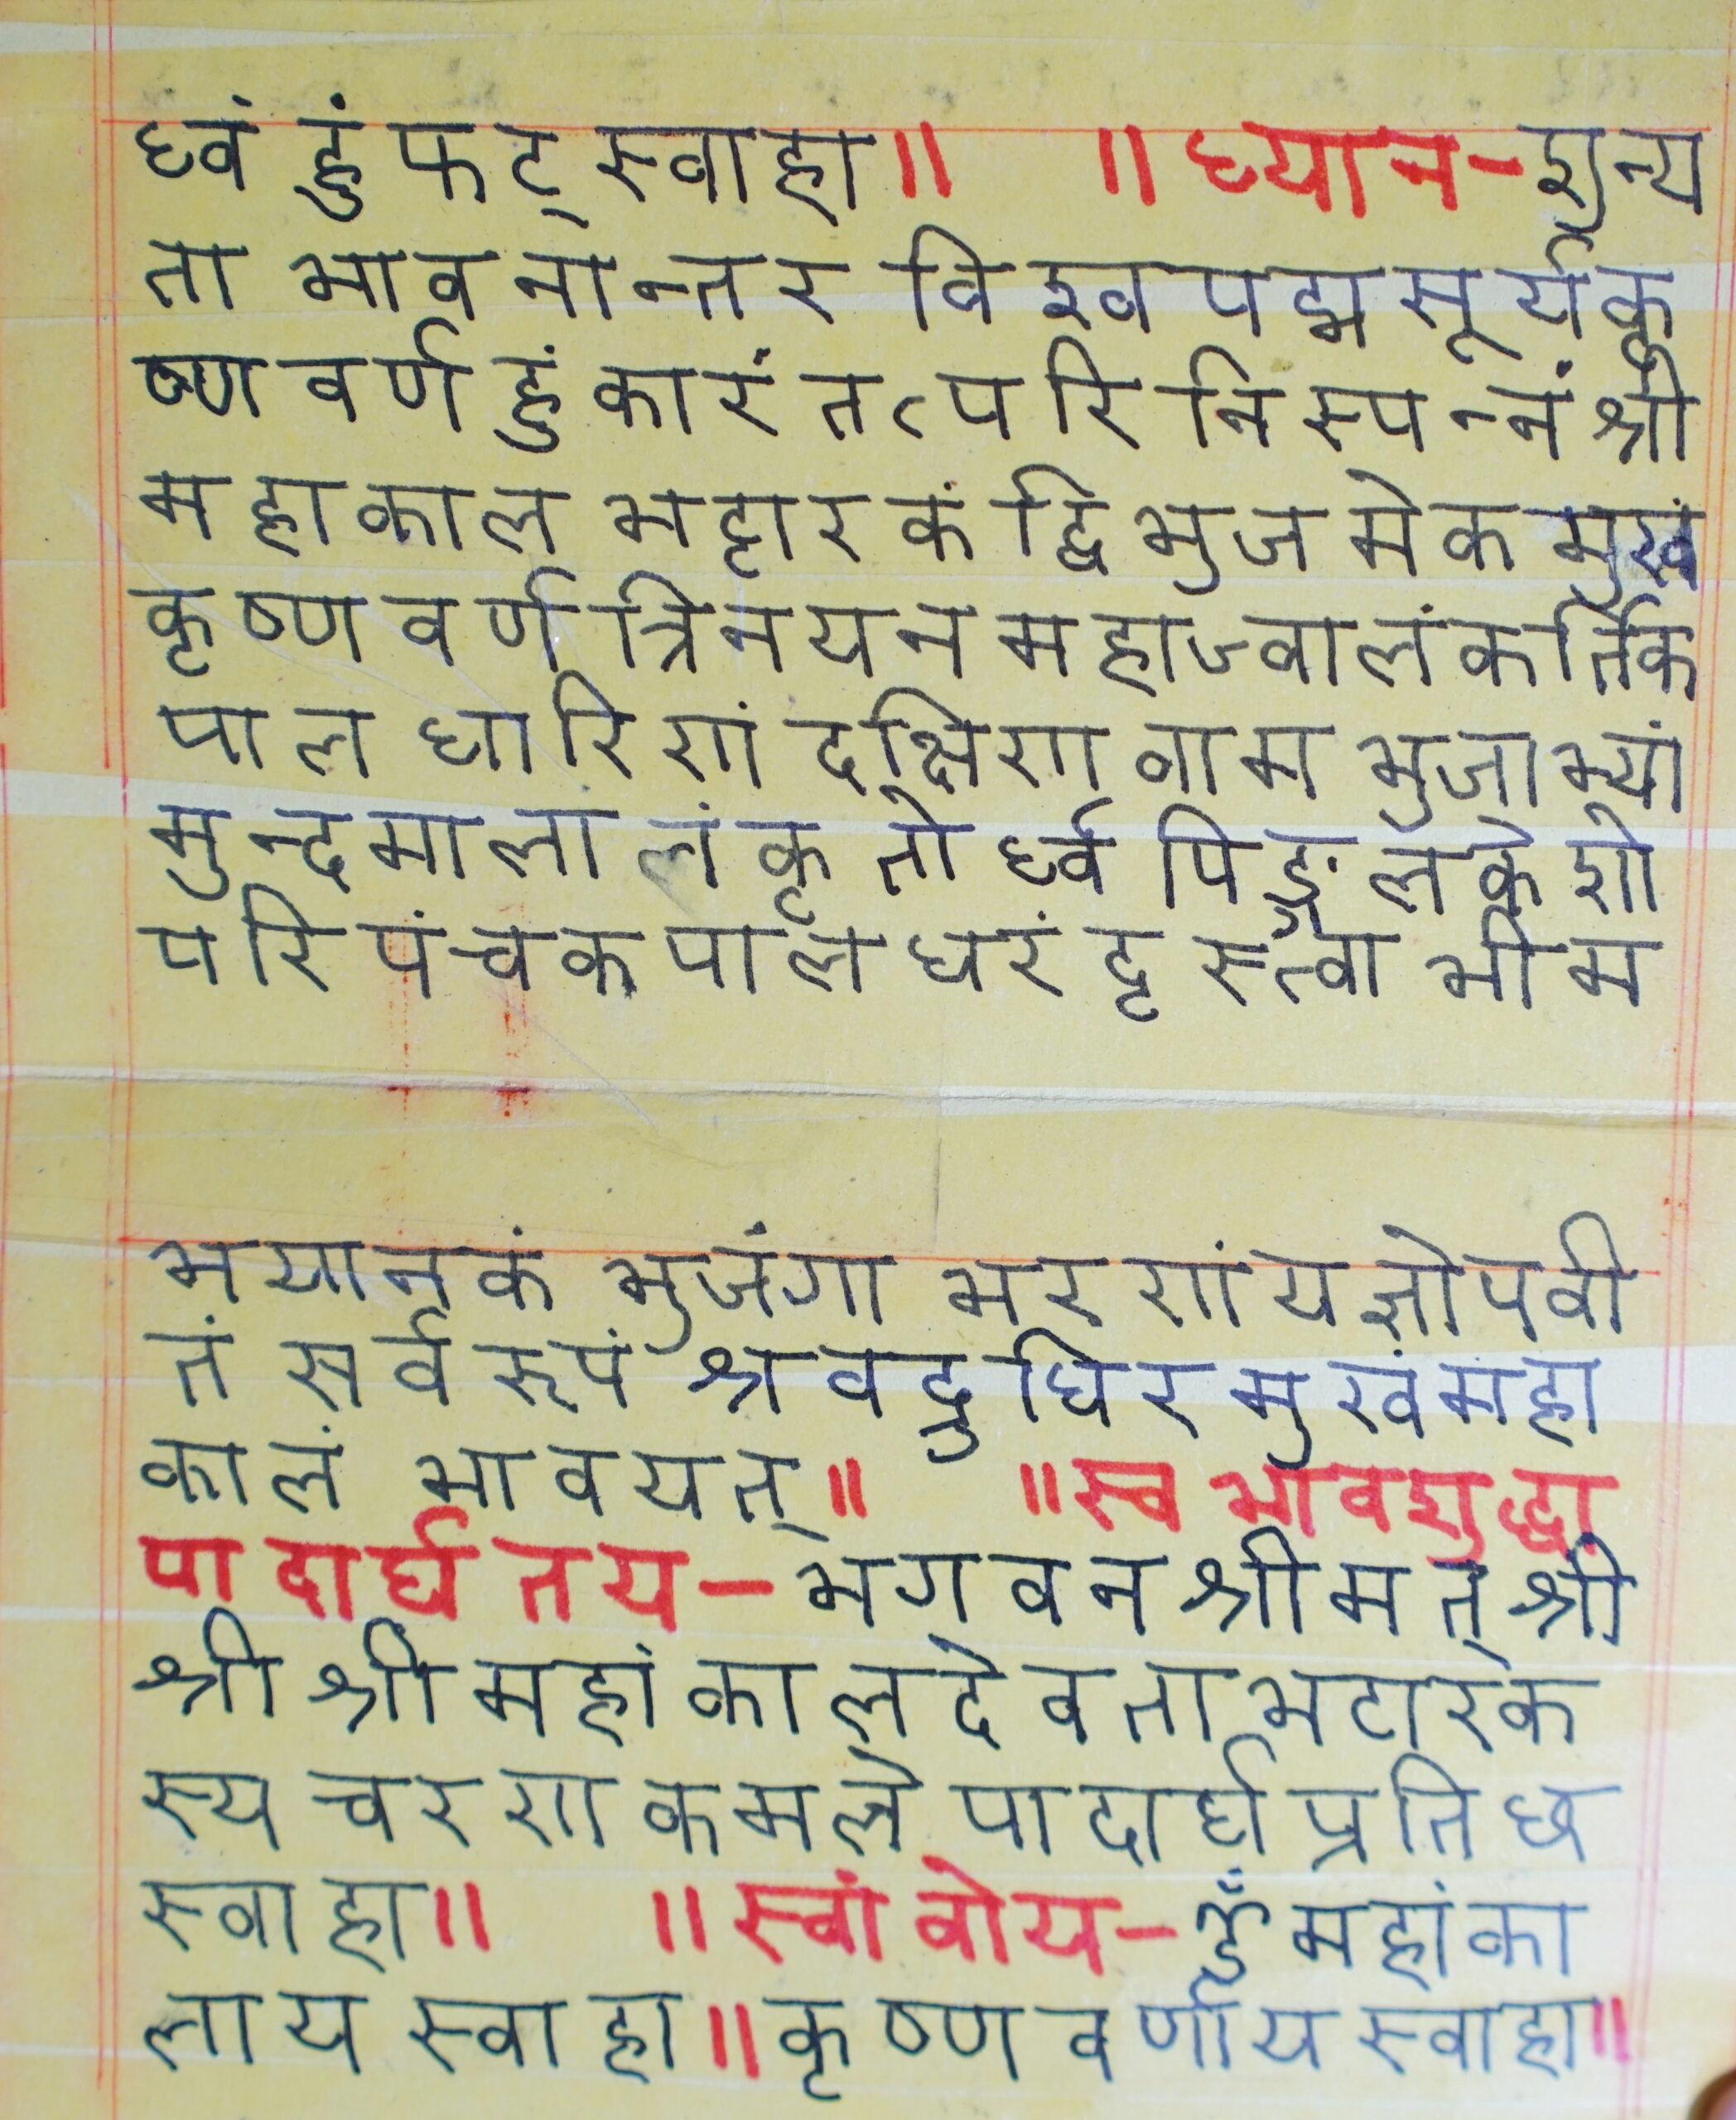 ध्वं हुं फट् स्वाहा॥ ॥ध्यान-शून्य
ता भावनान्तर विश्व पद्म सूर्यकृ
ष्ण वर्ण हुं कारं तत्परिनिस्पन्नं श्री
महाकाल भट्टारकं द्विभुजमेक मुखं
कृष्ण वर्ण त्रिनयन महाज्वालं कर्तिक
पाल धारिणं दक्षिण वाम भुजाभ्यां
मुन्दमाला लंकृतो र्ध्व पिङ्गल केशो
परि पंचकपाल धरं दृस्त्वा भीम
भयानकं भुजंगा भरणं यज्ञोपवी
तं सर्व रूपं श्रवद्रुधिर मुखं महा
कालं भावयत्॥ ॥स्वभावशुद्धा
पादार्घ तय-भगवन श्रीमत् श्री
श्री श्री महांकाल देवता भटारक
स्य चरण कमले पादार्घ प्रतिछ
स्वाहा॥ ॥स्वां वोय-ॐ महांका
लाय स्वाहा॥कृष्ण वर्णाय स्वाहा॥